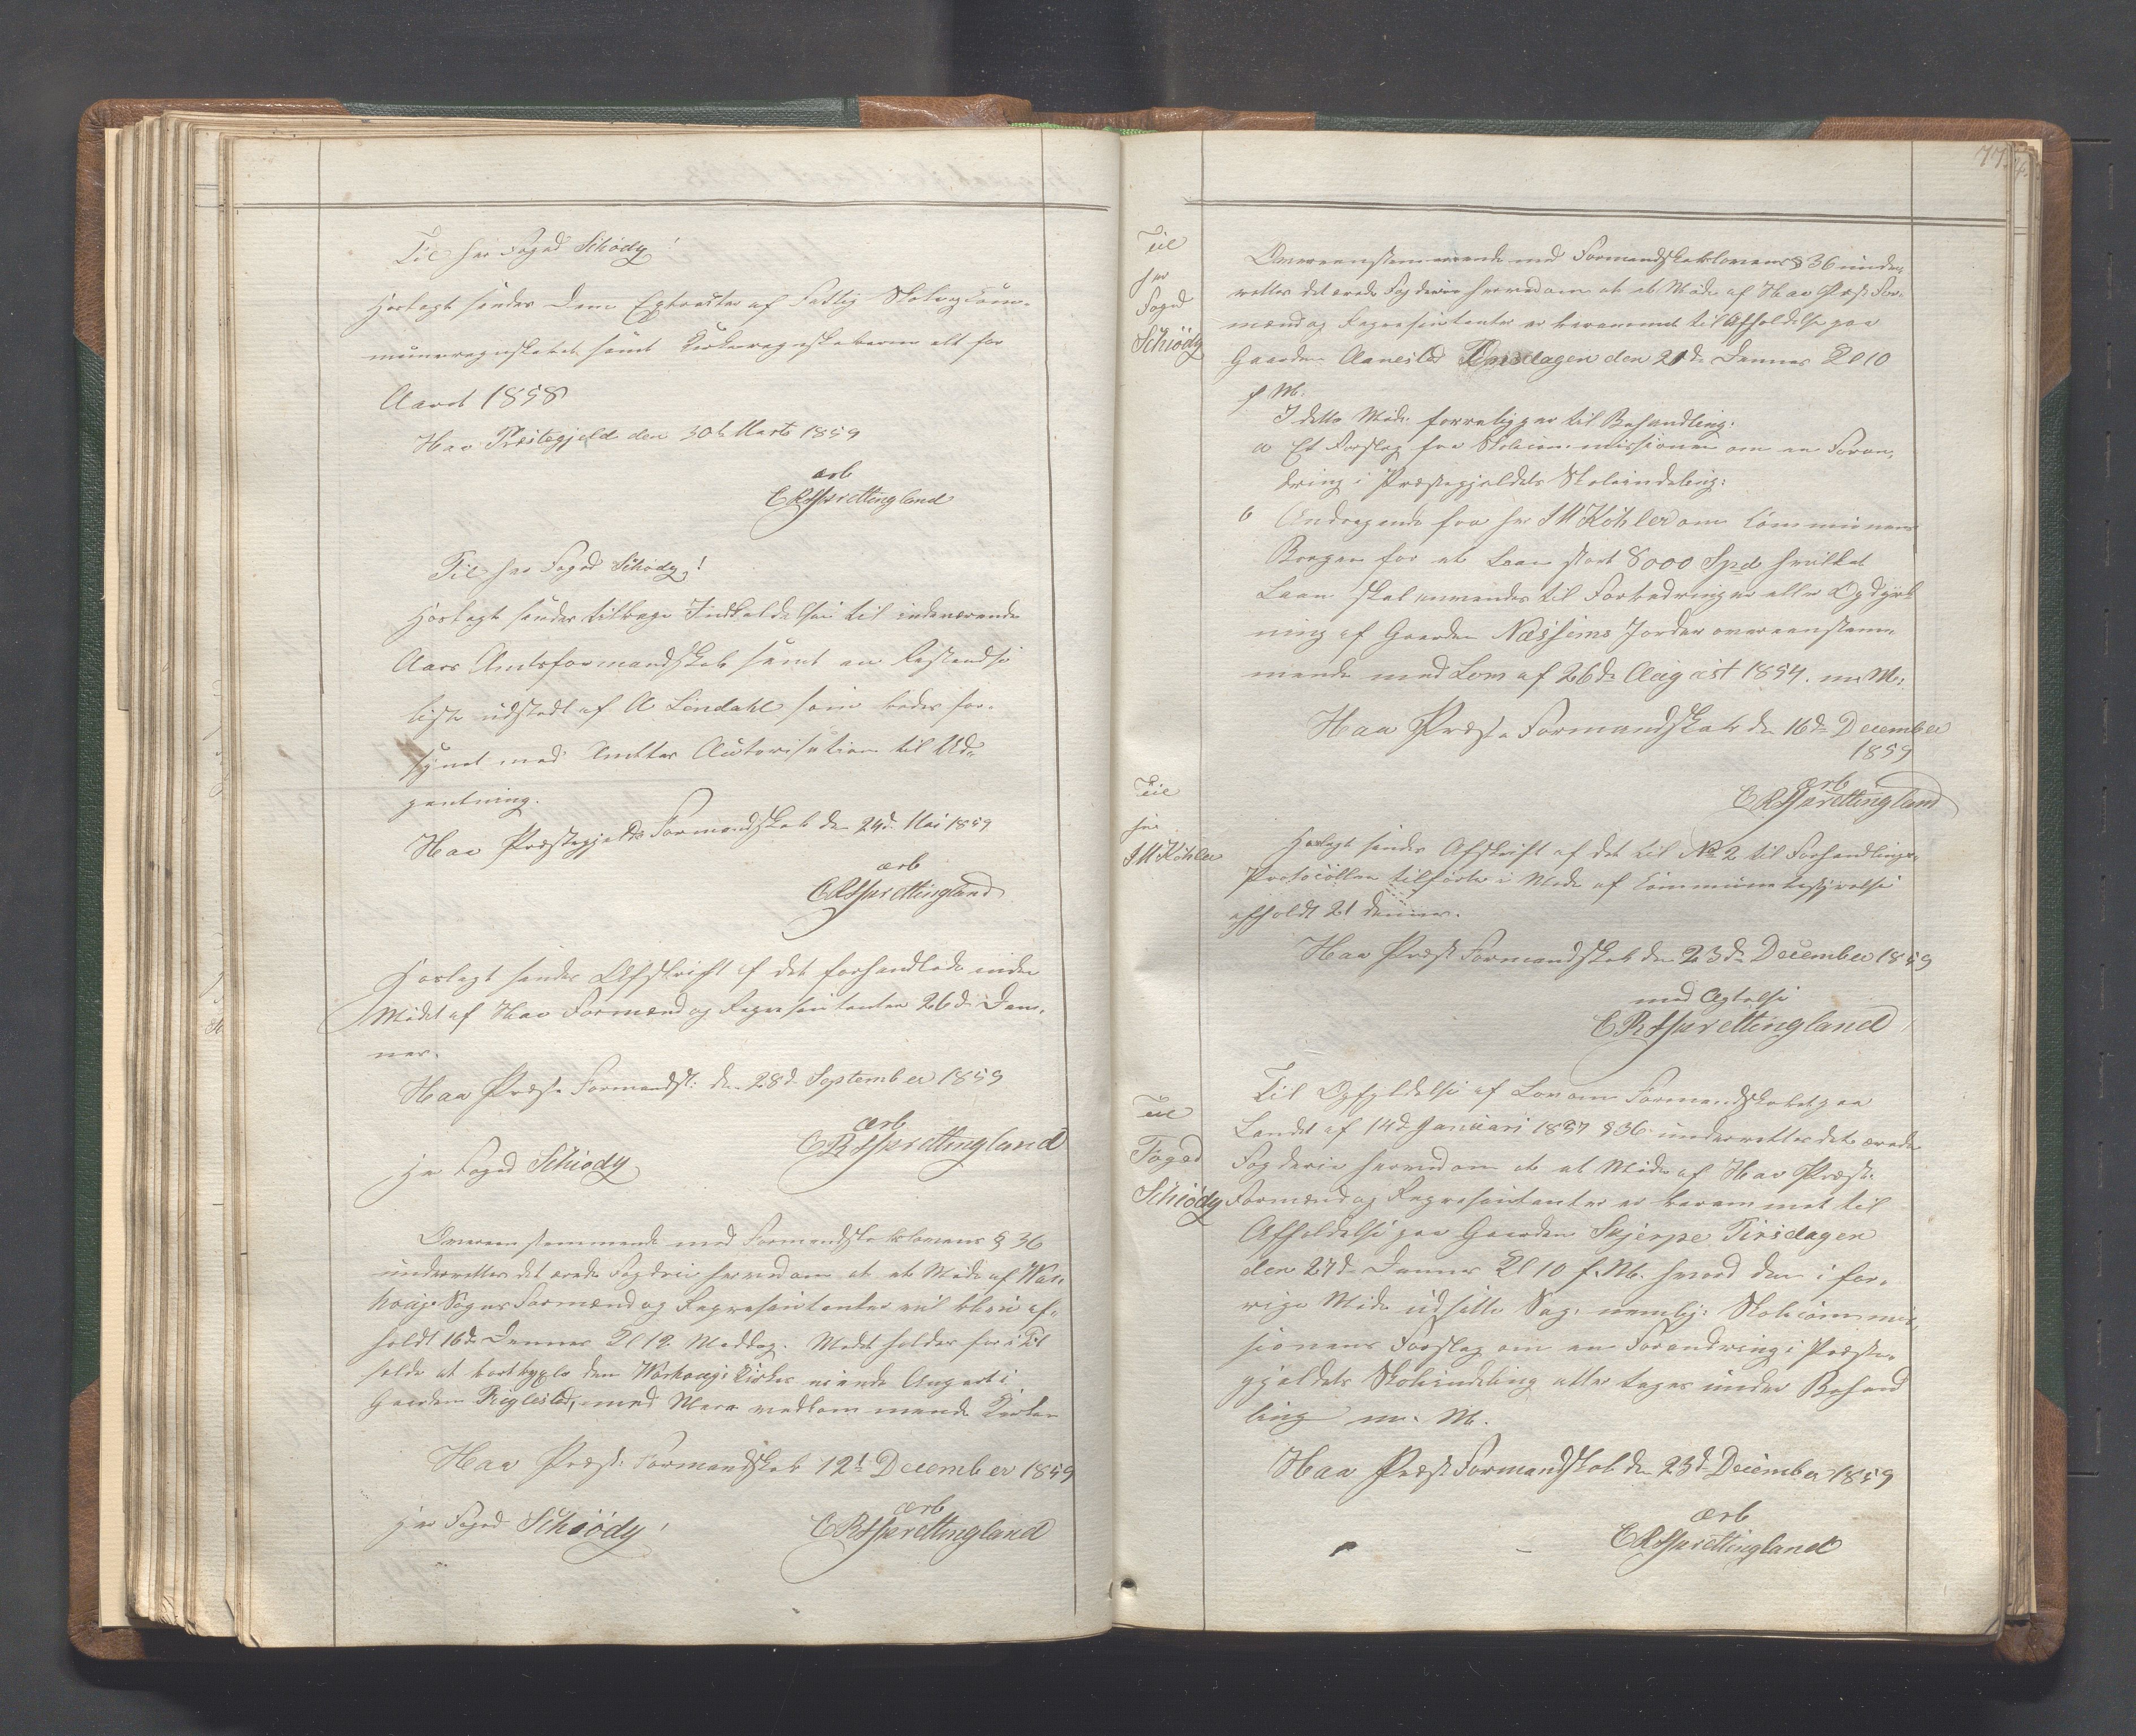 Til Hr Foged Schiødy!
Hoslagt sendes Dem Extracter af Fattig Skole og Com-
muneregnskabet samt Kirkeregnskaberne alt for
Aaret 1858
Haa Præstegjeld den 30te Marts 1859
ærb
C R Sprettingland
Til Hr Foged Schiødy!
Hoslagt sendes tilbage Indkaldelsen til indeværende
Aars Amtsformandskab samt en Restandse
liste udstedt af A. Lindahl som bedes for-
synet med Amtets Autorisation til Ud-
pantning.
Haa Præstegjelds Formandskab den 24d. Mai 1859
ærb
C R Sprettingland
Hoslagt sendes Afskrift af det forhandlede under
Mødet af Haa Formænd og Repræsentanter 26d. Den-
nes.
Haa Præst. Formandsk: den 28d. September 1859
ærb
C R Sprettingland
Hr Foged Schiødy
Overeenstemmende med Formandskabslovens § 36
underrettes det ærede Fogderie herved om at et Møde af War-
houg Sogns Formænd og Repræsentanter vil blive af-
holdt 16d. Dennes Kl 12 Middag. Mødet holdes for i Til
fælde at bortbygsle den Warhoug Kirke eiende Anpart i
Gaarden Reglestad, med Mere vedkommende Kirken
Haa Præst: Formandskab 12t December 1859
ærb
Hr Foged Schiødy! C R Sprettingland
77.
Til
Hr
Foged
Schiødy
Overeenstemmende med Formandskabslovens § 36 under-
rettes det ærede Fogderie herved om at et Møde af Haa Præst. For-
mænd og Repræsentanter er berammet til Afholdelse paa
Gaarden Aanestad Onsdagen den 21d. Dennes Kl 10
f M.
I dette Møde foreligger til Behandling:
a Et Forslag fra Skolecommissionen om en Foran-
dring i Præstegjeldets Skoleinddeling:
b Andragende fra Hr J M Køhler om Communens
Borgen for et Laan stort 8000 Spd hvilket
Laan skal anvendes til Forbedringer eller Opdyrk
ning af Gaarden Næsheims Jorder overeenstem-
mende med Lov af 26d. August 1854. m. M.
Haa Præst. Formandskab den 16d. December
1859
ærb
C R Sprettingland
Til
Hr
J M Køhler
Hoslagt sendes Afskrift af det til No 2 til Forhandlings-
Protocollen tilførte i Møde af Communebestyrelse
afholdt 21 dennes.
Haa Præst Formandskab den 23d. December 1859
med Agtelse
C R Sprettingland
Til
Foged
Schiødy
Til Opfyldelse af Lov om Formandskabet paa
Landet af 14d. Januari 1837 § 36 underrettes det ærede
Fogderie herved om at et Møde af Haa Præst:
Formænd og Repræsentanter er berammet til
Afholdelse paa Gaarden Skjerpe Tirsdagen
den 27d. Dennes Kl 10 f. M. hvord den i for-
rige Møde udsatte Sag: nemlig: Skolecommis-
sionens Forslag om en Forandring i Præste-
gjeldets Skoleinddeling atter tages under Behand
ling m. M.
Haa Præst Formandskab den 23d. December 1859
ærb
C R Sprettingland